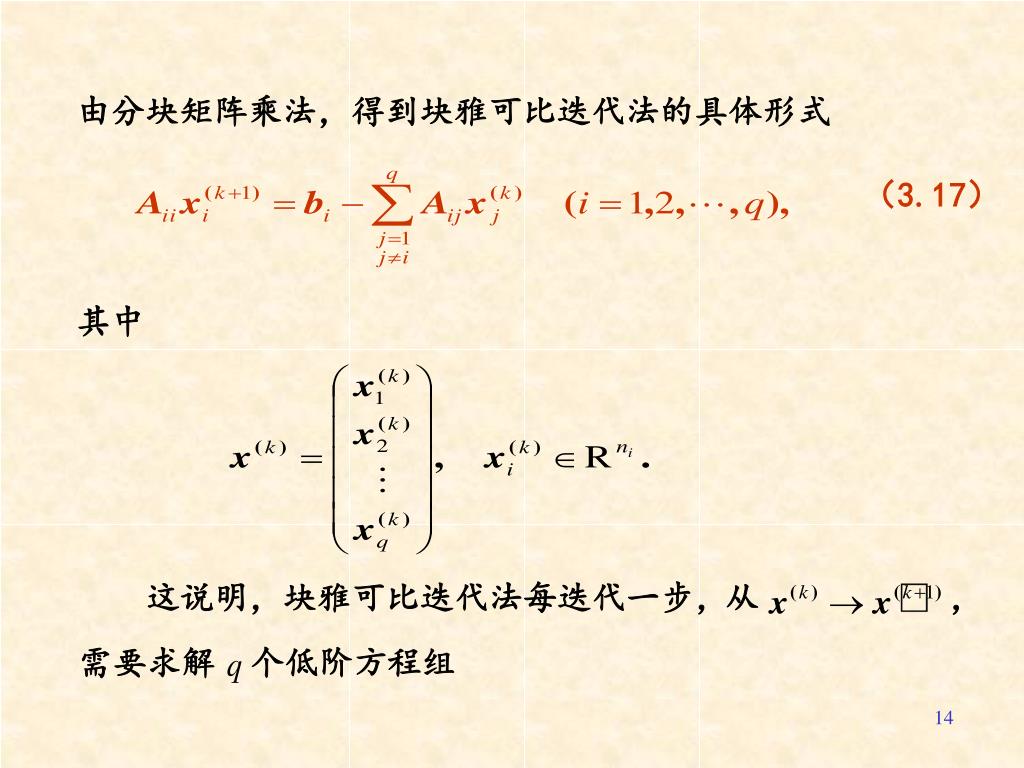 由分块矩阵乘法，得到块雅可比迭代法的具体形式
$A_{ii} x_i^{(k+1)} = b_i - \sum_{\substack{j=1 \\ j \neq i}}^{q} A_{ij} x_j^{(k)} \quad (i = 1,2,\cdots,q),$ （3.17）
其中
$x^{(k)} = \begin{pmatrix} x_1^{(k)} \\ x_2^{(k)} \\ \vdots \\ x_q^{(k)} \end{pmatrix}, \quad x_i^{(k)} \in \mathrm{R}^{n_i}.$
这说明，块雅可比迭代法每迭代一步，从 $x^{(k)} \to x^{(k+1)}$，
需要求解 q 个低阶方程组
14